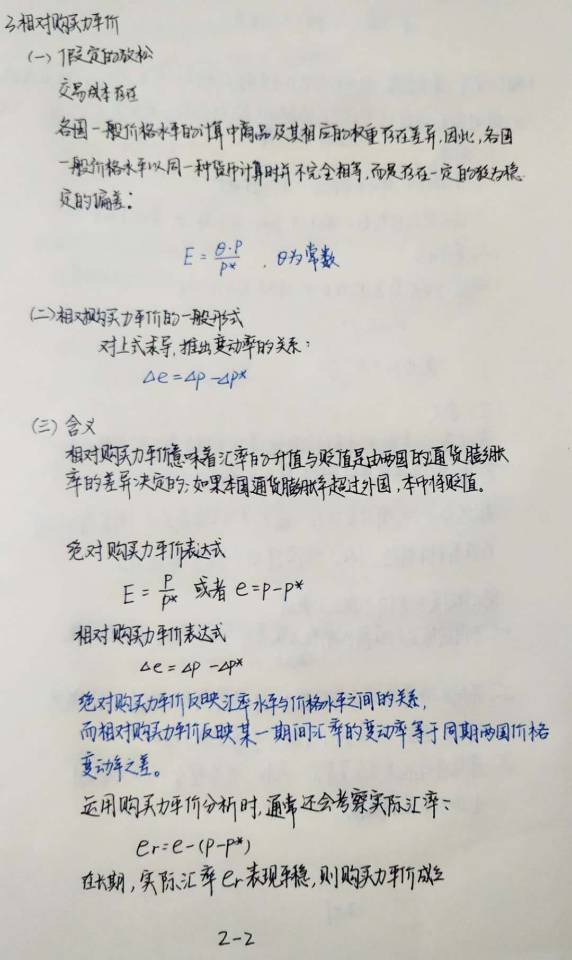 3相对购买力平价
(一)假定的放松
交易成本存在
各国一般价格水平的计算中商品及其相应的权重存在差异,因此,各国
一般价格水平以同一种货币计算时并不完全相等,而是存在一定的较为稳
定的偏差:
E=θ·P/P*,θ为常数
(二)相对购买力平价的一般形式
对上式求导,推出变动率的关系:
Δe=Δp-Δp*
(三)含义
相对购买力平价意味着汇率的升值与贬值是由两国的通货膨胀
率的差异决定的;如果本国通货膨胀率超过外国,本币将贬值。
绝对购买力平价表达式
E=P/P* 或者 e=p-p*
相对购买力平价表达式
Δe=Δp-Δp*
绝对购买力平价反映汇率水平与价格水平之间的关系,
而相对购买力平价反映某一期间汇率的变动率等于同期两国价格
变动率之差。
运用购买力平价分析时,通常还会考察实际汇率:
er=e-(p-p*)
在长期,实际汇率er表现平稳,则购买力平价成立
2-2